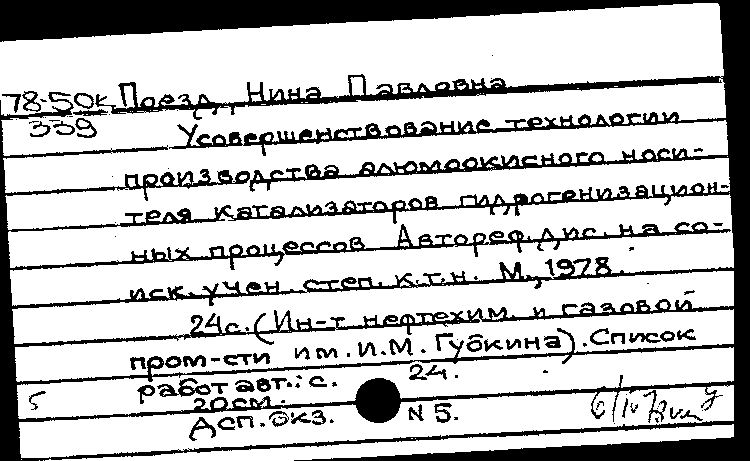 78-50к Поезд, Нина Павловна
339
Усовершенствование технологии
производства алюмоокисного носи-
теля катализаторов гидрогенизацион-
ных процессов Автореф. дис. на со-
иск. учен. степ. к.т.н. М., 1978.
24с. (Ин-т нефтехим. и газовой
пром-сти им. И.М. Губкина). Список
работ авт.: с. 24.
20см.
5
Дсп. Экз. N 5.